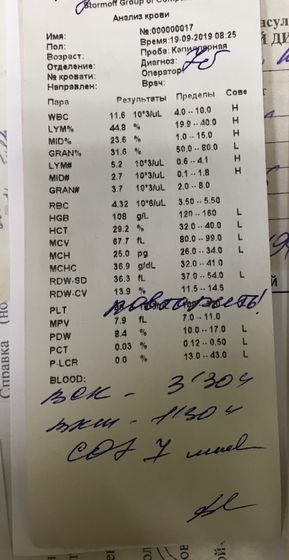 Stormoff Group of Comp
Анализ крови
Имя: №:000000017
Пол: Время:19-09-2019 08:25
Возраст: Проба: Капиллярная
Отделение: Диагноз:
№ кровати: Оператор:
Направлен: Врач:
Пара Результаты Пределы Сове
WBC 11.6 10^3/uL 4.0 -- 10.0 H
LYM% 44.8 % 19.9 -- 40.0 H
MID% 23.6 % 1.0 -- 15.0 H
GRAN% 31.6 % 50.0 -- 80.0 L
LYM# 5.2 10^3/uL 0.6 -- 4.1 H
MID# 2.7 10^3/uL 0.1 -- 1.8 H
GRAN# 3.7 10^3/uL 2.0 -- 8.0
RBC 4.32 10^6/uL 3.50 -- 5.50
HGB 108 g/L 120 -- 160 L
HCT 29.2 % 32.0 -- 40.0 L
MCV 67.7 fL 80.0 -- 99.0 L
MCH 25.0 pg 26.0 -- 34.0 L
MCHC 36.9 g/dL 32.0 -- 41.0
RDW-SD 36.3 fL 37.0 -- 54.0 L
RDW-CV 13.9 % 11.5 -- 14.5
PLT повторить!
MPV 7.9 fL 7.0 -- 11.0
PDW 8.4 % 10.0 -- 17.0 L
PCT 0.03 % 0.12 -- 0.50 L
P-LCR 0.0 % 13.0 -- 43.0 L
BLOOD:
3'30
1'30
СОЭ 7 мм/ч
Справка